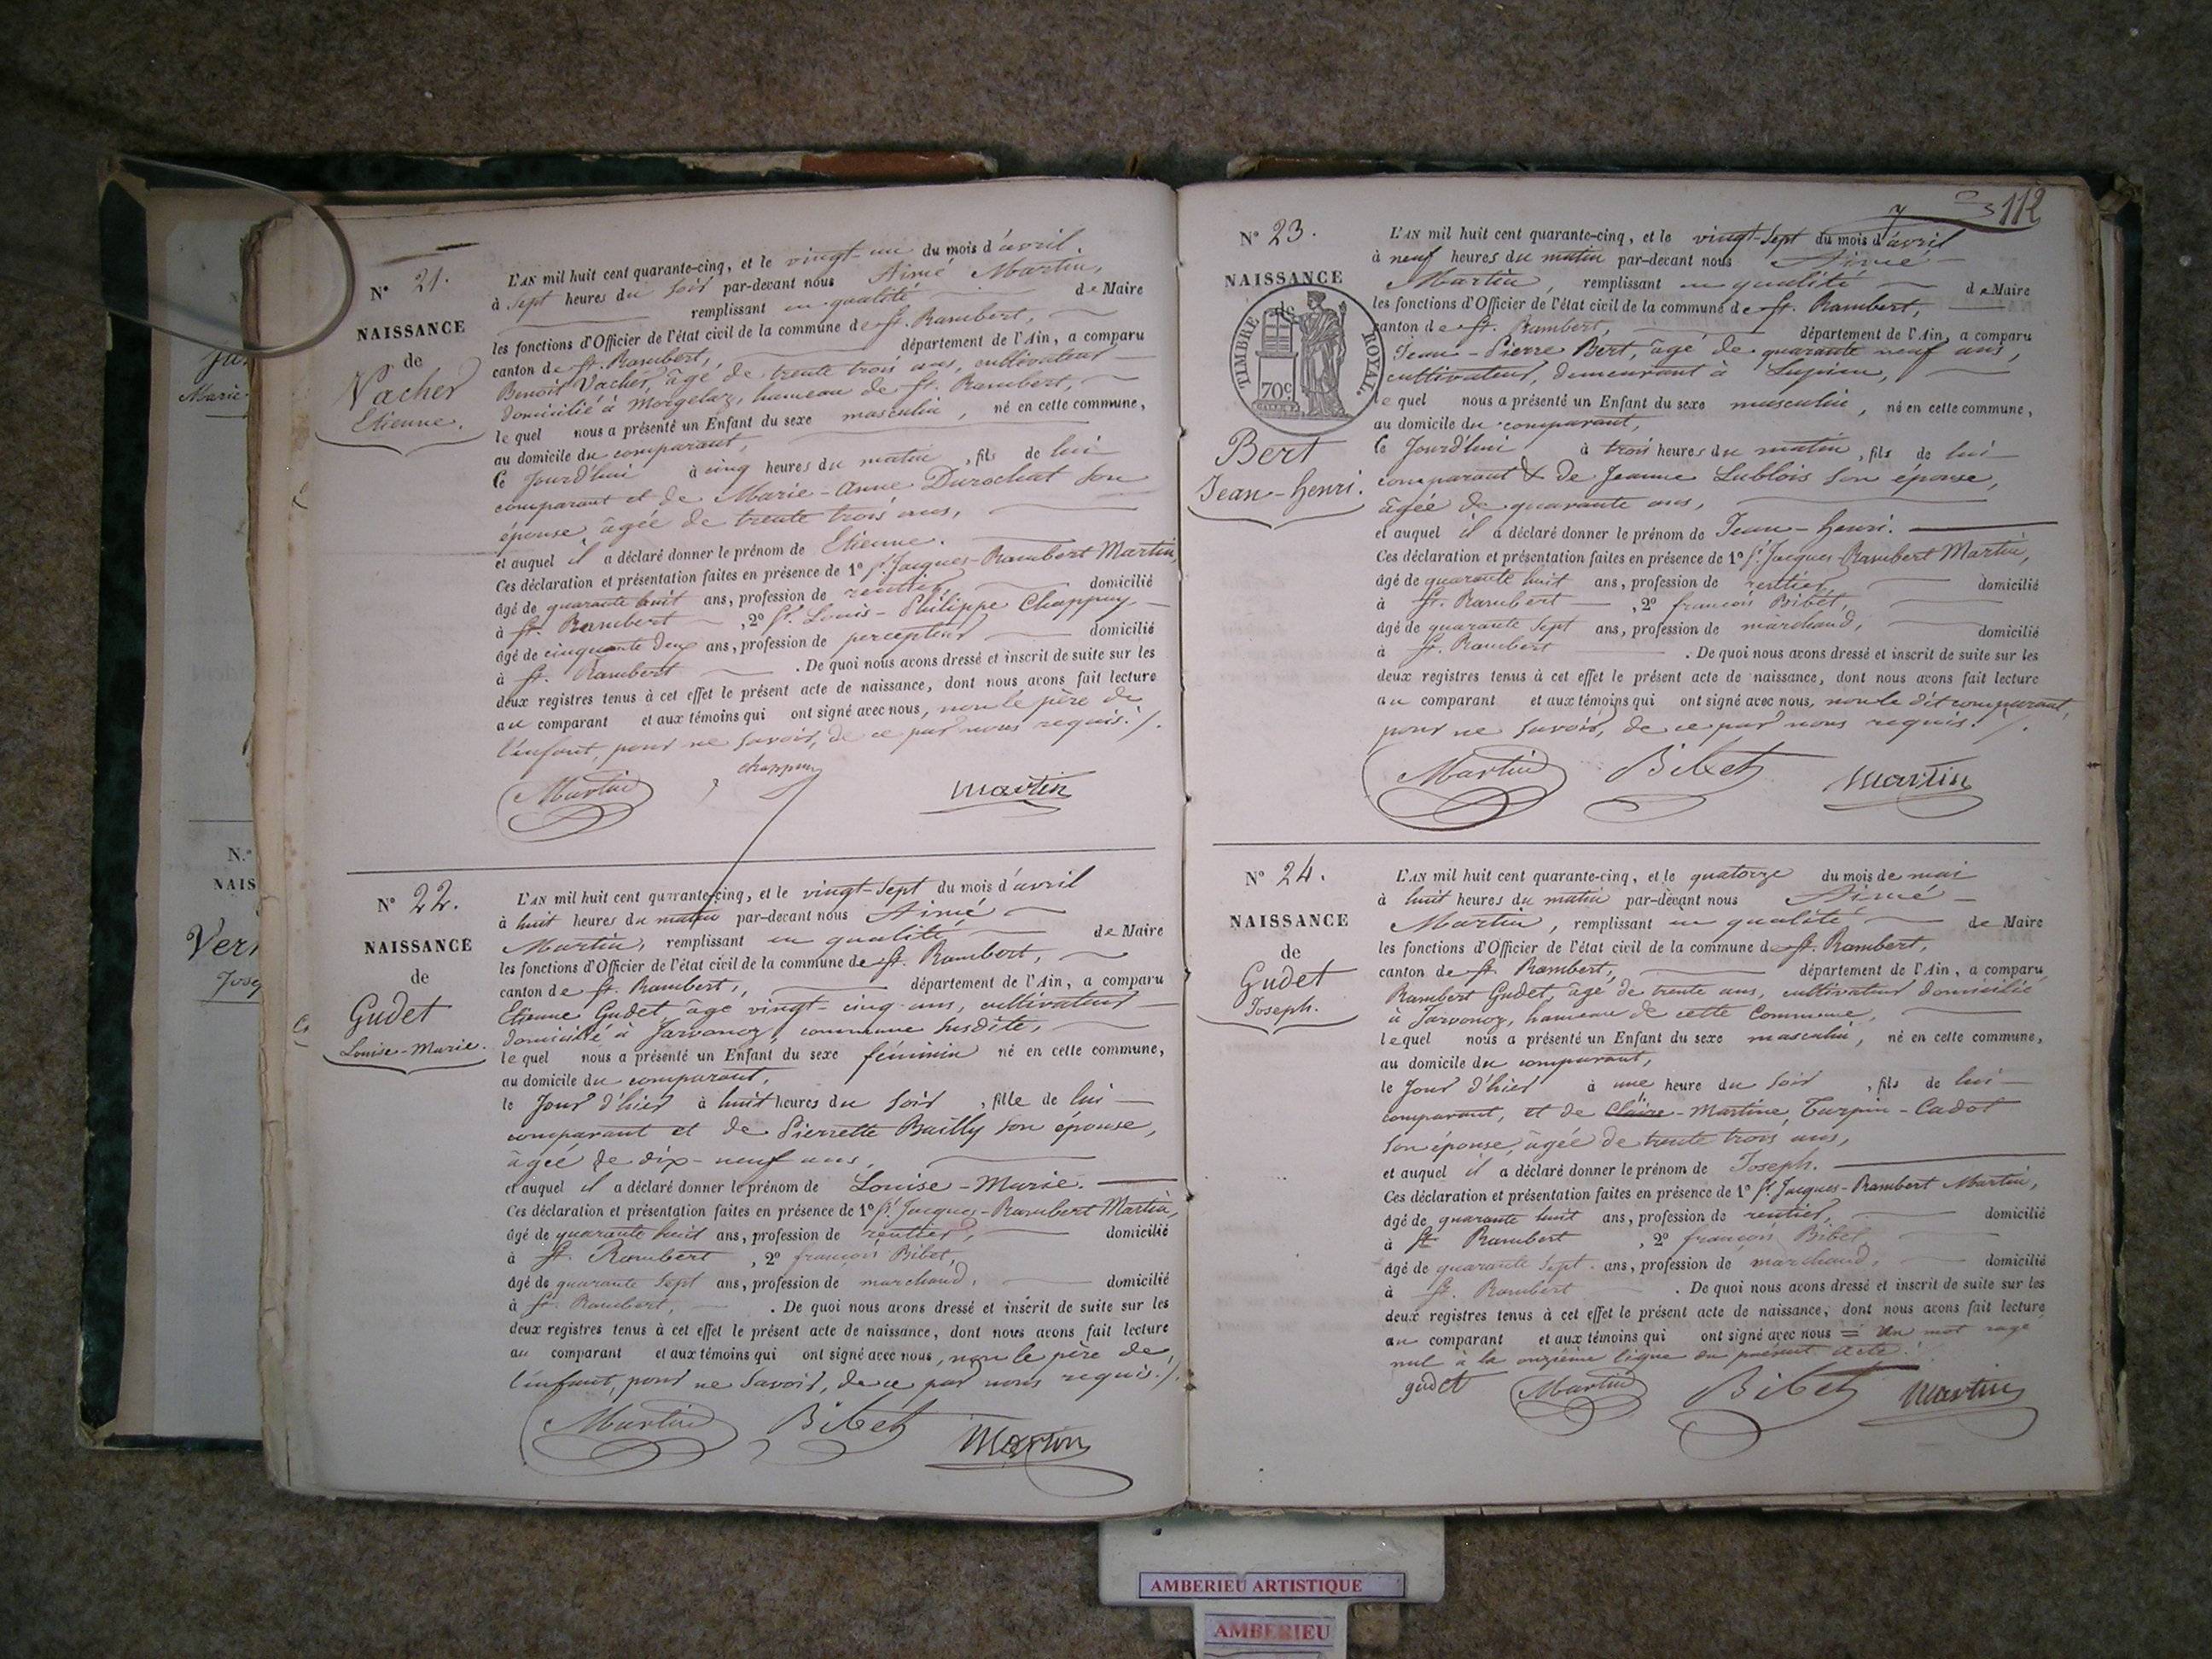 N° 21.
NAISSANCE
de
Vacher
Etienne.
L'AN mil huit cent quarante-cinq, et le vingt-un du mois d'avril.
à Sept heures du Soir par-devant nous Aimé Martin,
remplissant en qualité de Maire
les fonctions d'Officier de l'état civil de la commune de St. Rambert,
canton de St. Rambert, département de l'Ain, a comparu
Benoit Vacher, âgé de trente trois ans, cultivateur
domicilié à Morgelaz, hameau de St. Rambert,
le quel nous a présenté un Enfant du sexe masculin, né en cette commune,
au domicile du comparant,
Ce Jourd'hui à cinq heures du matin, fils de lui
comparant et de Marie-Anne Durochat son
épouse, âgée de trente trois ans,
et auquel il a déclaré donner le prénom de Etienne.
Ces déclaration et présentation faites en présence de 1° Sr. Jacques-Rambert Martin,
âgé de quarante huit ans, profession de rentier, domicilié
à St. Rambert, 2° Sr. Louis-Philippe Chappuy
âgé de cinquante deux ans, profession de percepteur domicilié
à St. Rambert. De quoi nous avons dressé et inscrit de suite sur les
deux registres tenus à cet effet le présent acte de naissance, dont nous avons fait lecture
au comparant et aux témoins qui ont signé avec nous, non le père de
l'enfant, pour ne savoir, de ce par nous requis./.
Martin chappuy Martin
N° 22.
NAISSANCE
de
Gudet
Louise-Marie.
L'AN mil huit cent quarante-cinq, et le vingt-Sept du mois d'avril
à huit heures du matin par-devant nous Aimé
Martin, remplissant en qualité de Maire
les fonctions d'Officier de l'état civil de la commune de St. Rambert,
canton de St. Rambert, département de l'Ain, a comparu
Etienne Gudet, âgé vingt-cinq ans, cultivateur
domicilié à Javornoz, commune Susdite,
le quel nous a présenté un Enfant du sexe féminin né en cette commune,
au domicile du comparant,
le Jour d'hier à huit heures du Soir, fille de lui
comparant et de Pierrette Bailly son épouse,
âgée de dix-neuf ans,
et auquel il a déclaré donner le prénom de Louise-Marie.
Ces déclaration et présentation faites en présence de 1° Sr. Jacques-Rambert Martin,
âgé de quarante huit ans, profession de rentier, domicilié
à St. Rambert, 2° françois Bibet,
âgé de quarante Sept ans, profession de marchand, domicilié
à St. Rambert, . De quoi nous avons dressé et inscrit de suite sur les
deux registres tenus à cet effet le présent acte de naissance, dont nous avons fait lecture
au comparant et aux témoins qui ont signé avec nous, non le père de
l'enfant, pour ne Savoir, de ce par nous requis./.
Martin Bibet Martin
112
N° 23.
NAISSANCE
de
TIMBRE ROYAL.
70c
Bert
Jean-henri.
L'AN mil huit cent quarante-cinq, et le vingt-Sept du mois d'avril
à neuf heures du matin par-devant nous Aimé
Martin, remplissant en qualité de Maire
les fonctions d'Officier de l'état civil de la commune de St. Rambert,
canton de St. Rambert, département de l'Ain, a comparu
Jean-Pierre Bert, âgé de quarante neuf ans,
cultivateur, demeurant à Lupieu,
le quel nous a présenté un Enfant du sexe masculin, né en cette commune,
au domicile du comparant,
Ce Jourd'hui à trois heures du matin, fils de lui
comparant & de Jeanne Lublois Son épouse,
âgée de quarante ans,
et auquel il a déclaré donner le prénom de Jean-henri.
Ces déclaration et présentation faites en présence de 1° Sr. Jacques-Rambert Martin,
âgé de quarante huit ans, profession de rentier, domicilié
à St. Rambert, 2° françois Bibet,
âgé de quarante Sept ans, profession de marchand, domicilié
à St. Rambert. De quoi nous avons dressé et inscrit de suite sur les
deux registres tenus à cet effet le présent acte de naissance, dont nous avons fait lecture
au comparant et aux témoins qui ont signé avec nous, non le dit comparant,
pour ne Savoir, de ce par nous requis./.
Martin Bibet Martin
N° 24.
NAISSANCE
de
Gudet
Joseph.
L'AN mil huit cent quarante-cinq, et le quatorze du mois de mai
à huit heures du matin par-devant nous Aimé
Martin, remplissant en qualité de Maire
les fonctions d'Officier de l'état civil de la commune de St. Rambert,
canton de St. Rambert, département de l'Ain, a comparu
Rambert Gudet, âgé de trente ans, cultivateur domicilié
à Javornoz, hameau de cette Commune,
le quel nous a présenté un Enfant du sexe masculin, né en cette commune,
au domicile du comparant,
le Jour d'hier à une heure du Soir, fils de lui
comparant, et de Claire-Martine Turpin-Cadot
Son épouse, âgée de trente trois ans,
et auquel il a déclaré donner le prénom de Joseph.
Ces déclaration et présentation faites en présence de 1° Sr. Jacques-Rambert Martin,
âgé de quarante huit ans, profession de rentier, domicilié
à St. Rambert, 2° françois Bibet,
âgé de quarante Sept ans, profession de marchand, domicilié
à St. Rambert. De quoi nous avons dressé et inscrit de suite sur les
deux registres tenus à cet effet le présent acte de naissance, dont nous avons fait lecture
au comparant et aux témoins qui ont signé avec nous = Un mot rayé
nul à la onzième ligne du présent acte.
gudet Martin Bibet Martin
AMBERIEU ARTISTIQUE
AMBERIEU